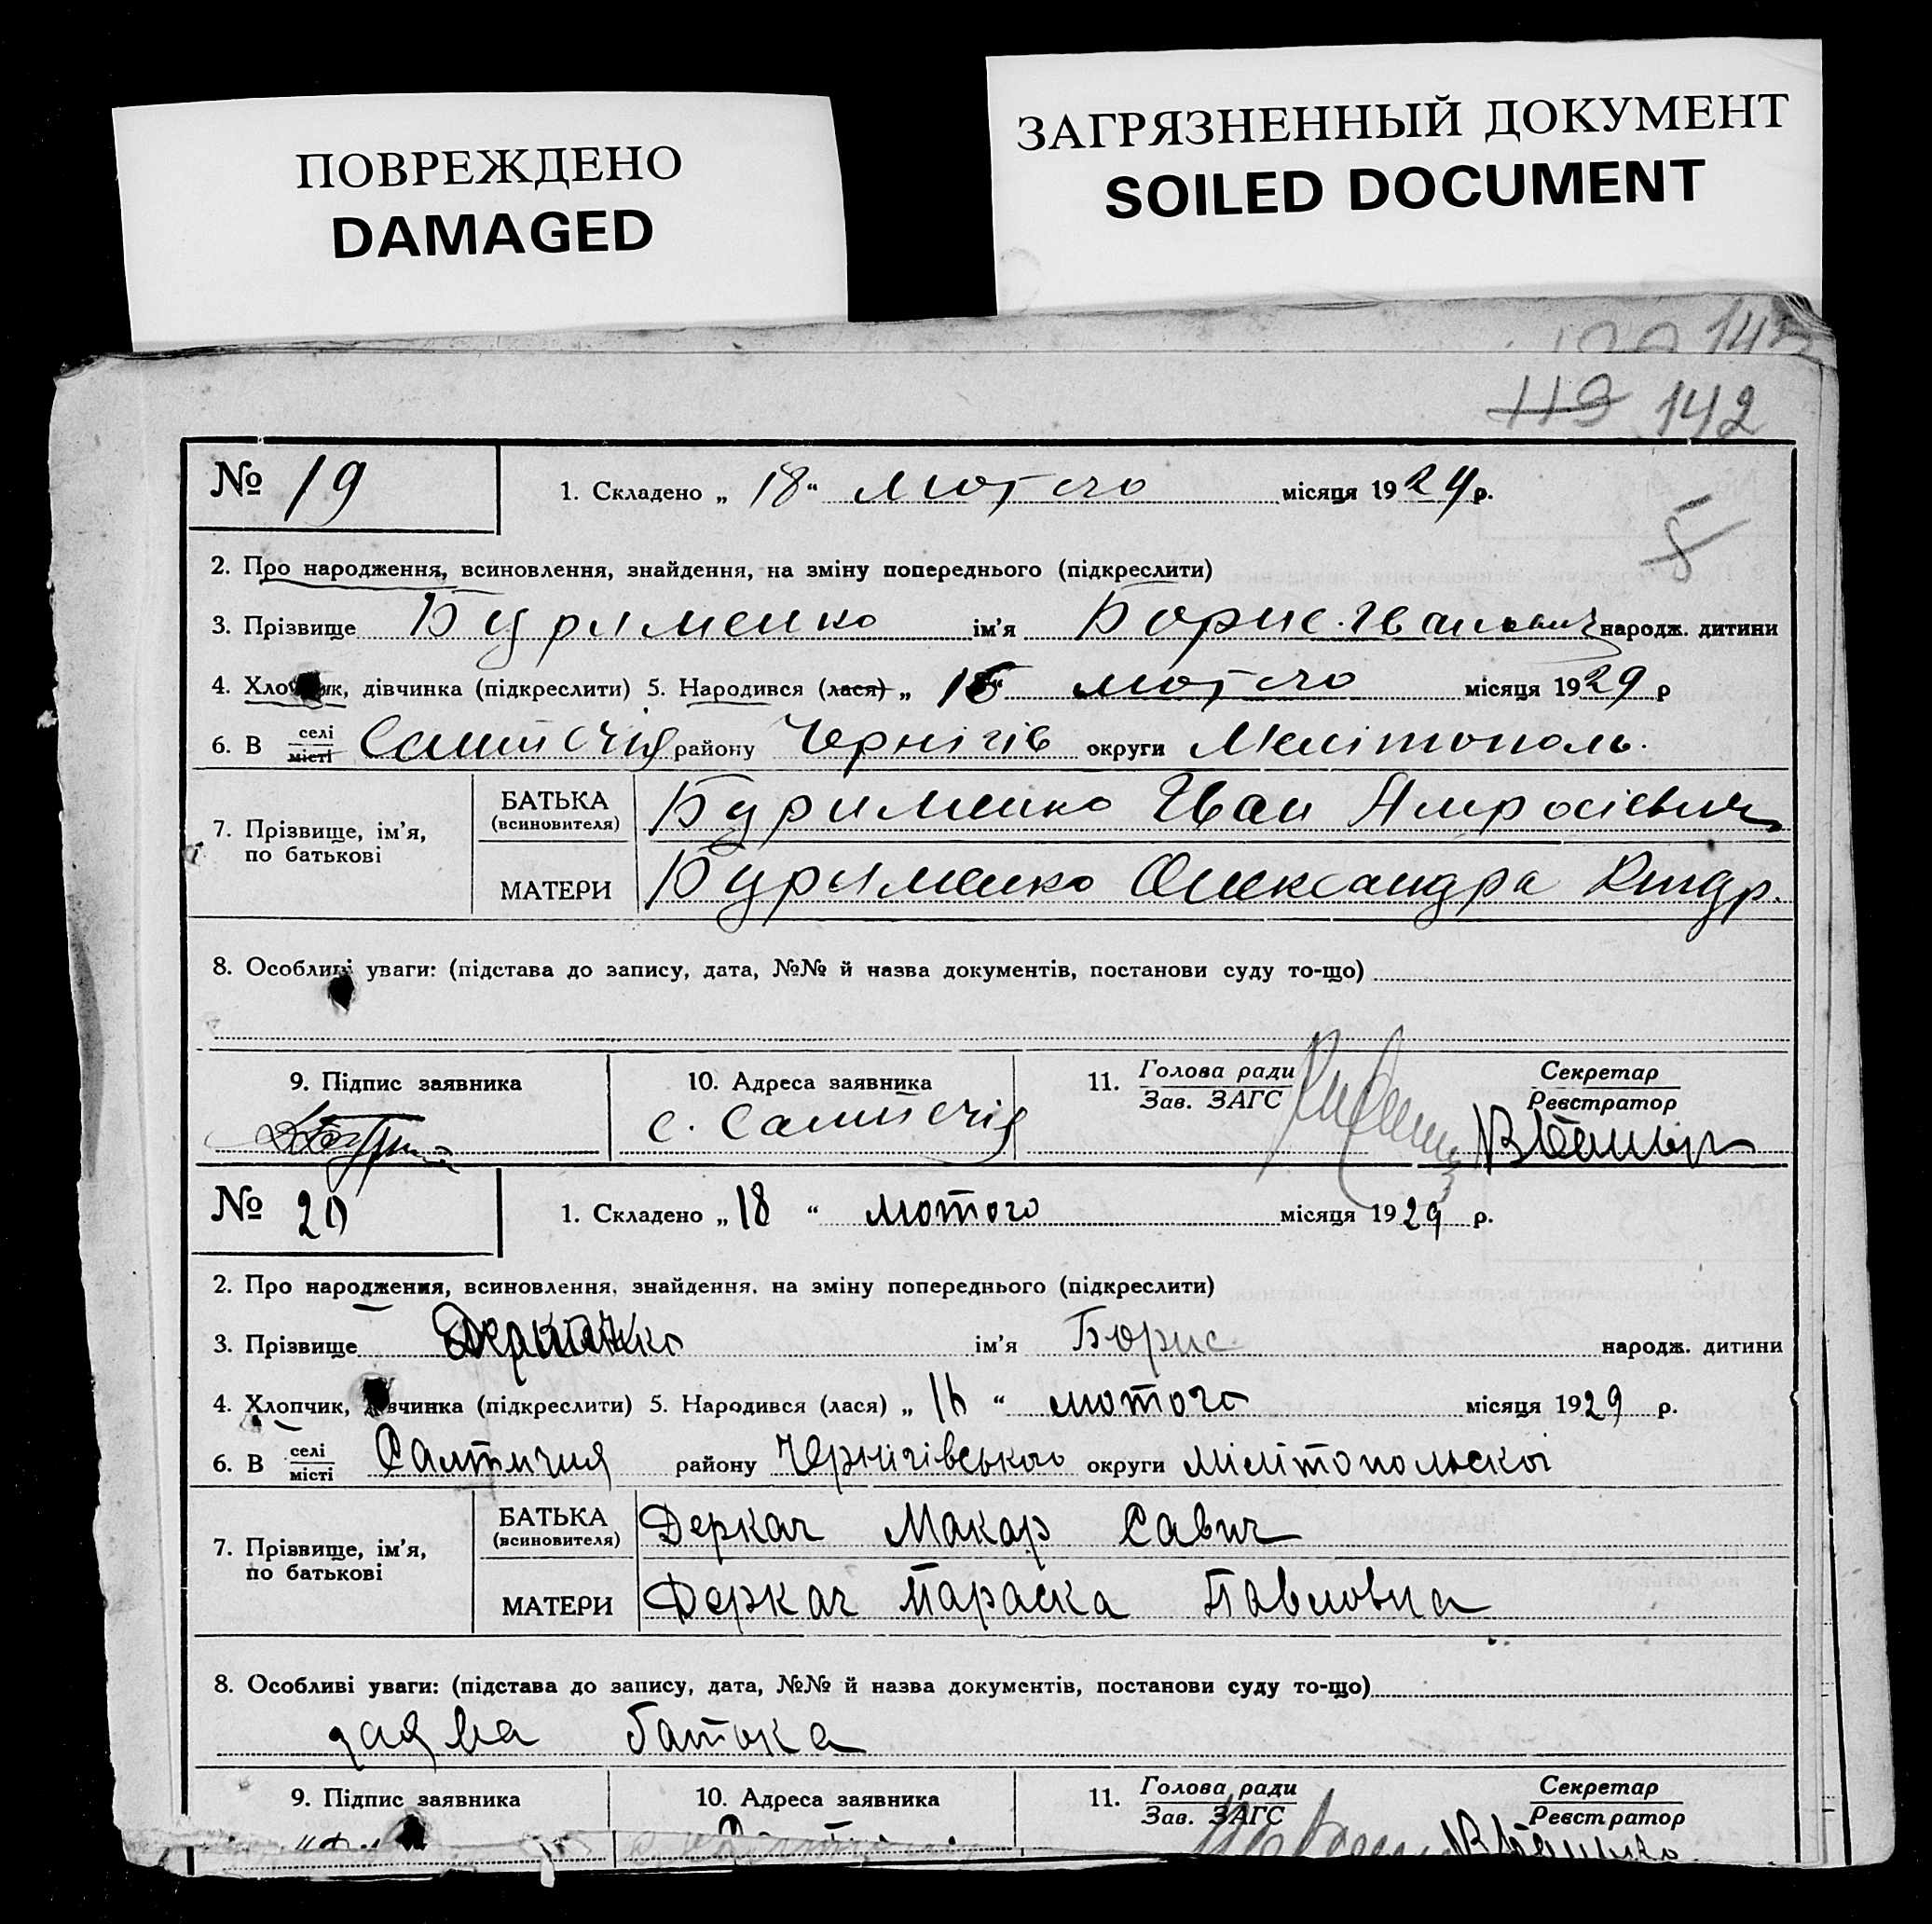 ПОВРЕЖДЕНО
DAMAGED
ЗАГРЯЗНЕННЫЙ ДОКУМЕНТ
SOILED DOCUMENT
142
113 142
№ 19
1. Складено „ 18 “ лютого місяця 1929 р.
5
2. Про народження, всиновлення, знайдення, на зміну попереднього (підкреслити)
3. Прізвище Буряменко ім'я Борис Іванович народж. дитини
4. Хлопчик, дівчинка (підкреслити) 5. Народився (лася) „ 16 “ лютого місяця 1929 р
6. В селі місті Салтичія району Чернігів округи Мелітополь.
7. Прізвище, ім'я, по батькові
БАТЬКА (всиновителя) Буряменко Іван Амросієвич
МАТЕРИ Буряменко Олександра
8. Особливі уваги: (підстава до запису, дата, №№ й назва документів, постанови суду то-що)
9. Підпис заявника
10. Адреса заявника
11. Голова ради Зав. ЗАГС
Секретар Реєстратор
с. Салтичія
№ 20
1. Складено „ 18 “ лютого місяця 1929 р.
2. Про народження, всиновлення, знайдення, на зміну попереднього (підкреслити)
3. Прізвище ім'я Борис народж. дитини
4. Хлопчик, дівчинка (підкреслити) 5. Народився (лася) „ 16 “ лютого місяця 1929 р.
6. В селі місті Салтичия району Чернігівського округи Мілітопольскої
7. Прізвище, ім'я, по батькові
БАТЬКА (всиновителя) Деркач Макар Савич
МАТЕРИ Деркач Параска Павловна
8. Особливі уваги: (підстава до запису, дата, №№ й назва документів, постанови суду то-що)
заява батька
9. Підпис заявника
10. Адреса заявника
11. Голова ради Зав. ЗАГС
Секретар Реєстратор